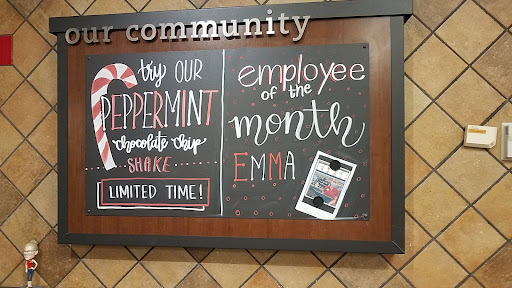 our community
try OUR
PEPPERMINT
chocolate chip
SHAKE
LIMITED TIME!
employee
of the
month
EMMA